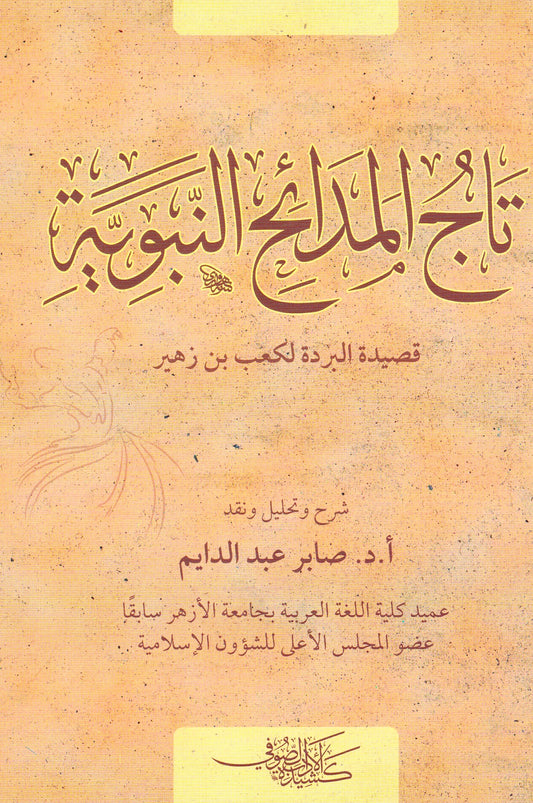 تَاجُ الْمَدَائِحِ النَّبَوِيَّةِ
قصيدة البردة لكعب بن زهير
شرح وتحليل ونقد
أ.د. صابر عبد الدايم
عميد كلية اللغة العربية بجامعة الأزهر سابقًا
عضو المجلس الأعلى للشؤون الإسلامية
كشيدة